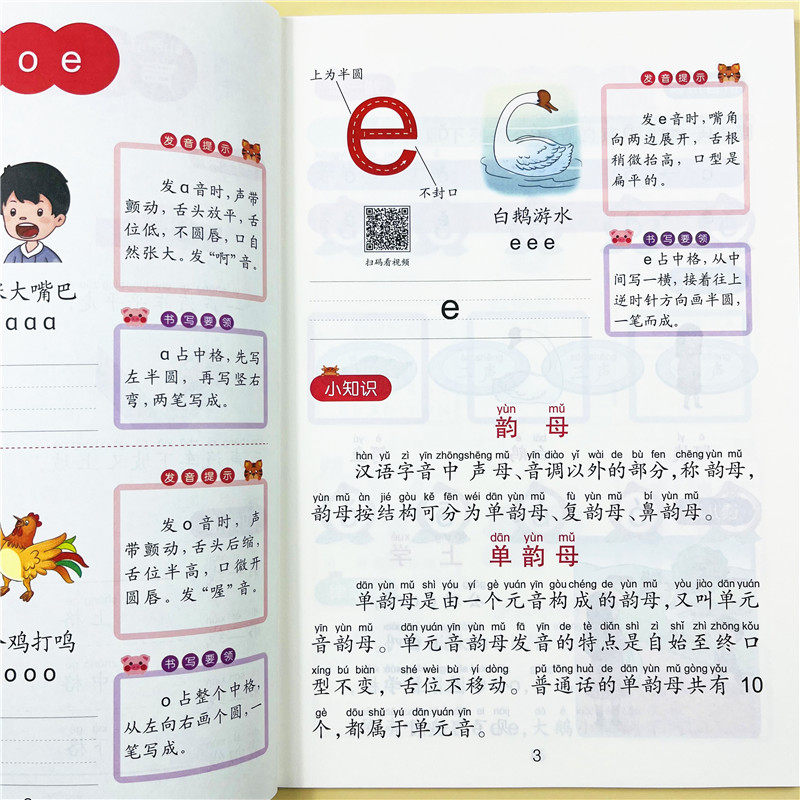 o e
发音提示
发ɑ音时，声带
颤动，舌头放平，舌
位低，不圆唇，口自
然张大。发“啊”音。
大嘴巴
ɑɑɑ
书写要领
ɑ占中格，先写
左半圆，再写竖右
弯，两笔写成。
发音提示
发o音时，声
带颤动，舌头后缩，
舌位半高，口微开
圆唇。发“喔”音。
鸡打鸣
ooo
书写要领
o占整个中格，
从左向右画个圆，一
笔写成。
上为半圆
e
不封口
扫码看视频
白鹅游水
eee
发音提示
发e音时，嘴角
向两边展开，舌根
稍微抬高，口型是
扁平的。
书写要领
e占中格，从中
间写一横，接着往上
逆时针方向画半圆，
一笔而成。
e
小知识
yùn mǔ
韵母
hàn yǔ zì yīn zhōng shēng mǔ yīn diào yǐ wài de bù fen chēng yùn mǔ
汉语字音中声母、音调以外的部分，称韵母，
yùn mǔ àn jié gòu kě fēn wéi dān yùn mǔ fù yùn mǔ bí yùn mǔ
韵母按结构可分为单韵母、复韵母、鼻韵母。
dān yùn mǔ
单韵母
dān yùn mǔ shì yóu yí gè yuán yīn gòu chéng de yùn mǔ yòu jiào dān yuán
单韵母是由一个元音构成的韵母，又叫单元
yīn yùn mǔ dān yuán yīn yùn mǔ fā yīn de tè diǎn shì zì shǐ zhì zhōng kǒu
音韵母。单元音韵母发音的特点是自始至终口
xíng bú biàn shé wèi bù yí dòng pǔ tōng huà de dān yùn mǔ gòng yǒu
型不变，舌位不移动。普通话的单韵母共有 10
gè dōu shǔ yú dān yuán yīn
个，都属于单元音。
3